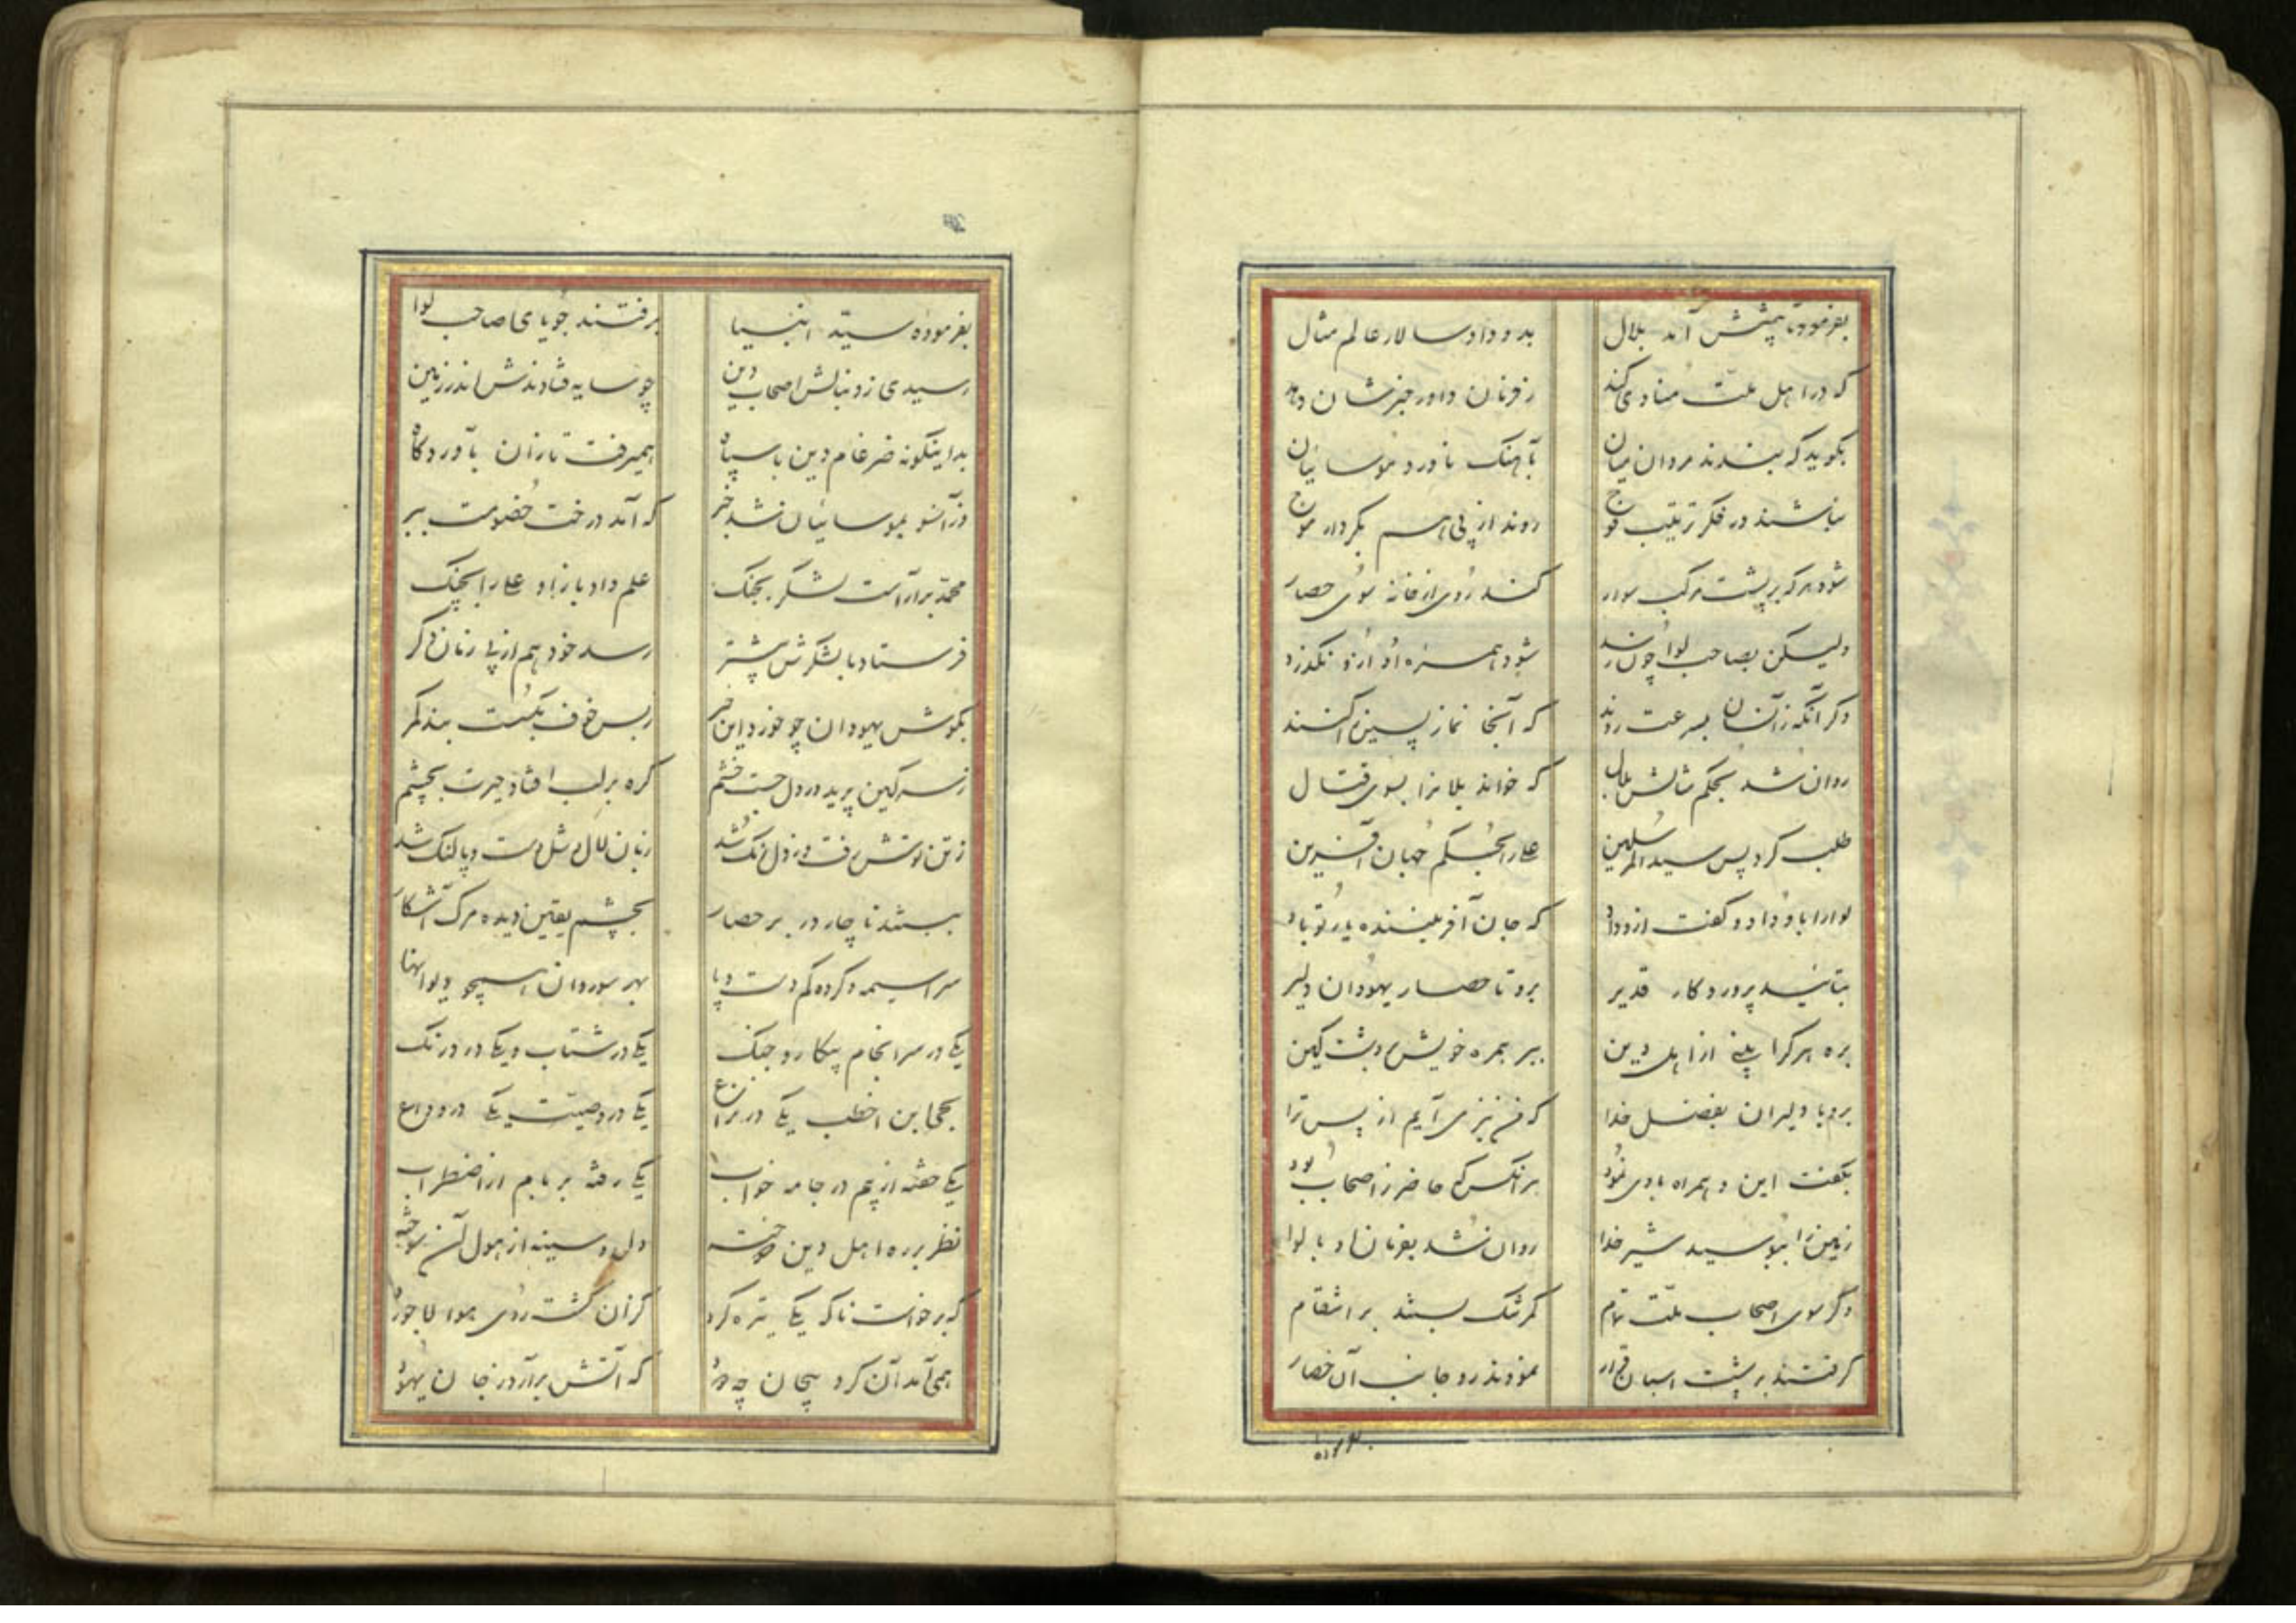 بفرمود تا پیشش آمد بلال بدو داد سالار عالم مثال
که در اهل ملت منادی کند ز فرمان داور خبرشان دهد
بگوید که بندند مردان میان بآهنک ناورد موسائیان
نباشند در فکر ترتیب فوج روند از پی هم بکردار موج
شود هرکه بر پشت مرکب سوار کند روی از خانه سوی حصار
ولیکن بصاحب لوا چون رسد شود همره او ازو نکذرد
دکر آنکه زانسان بسرعت روند که آنجا نماز پسین را کنند
روان شد بحکم مثالش بلال که خواند یلانرا بسوی قتال
طلب کرد پس سید المرسلین علی را بحکم جهان آفرین
لوا را باو داد و کفت از وداد که جان آفریننده یار تو باد
بتائید پروردکار قدیر برو تا حصار یهودان دلیر
بره هرکرا بینی از اهل دین ببر همره خویش در دشت کین
برو با دلیران بفضل خدا که من نیز می آیم از پس ترا
بکفت این و همراه با وی نمود هر آنکس که حاضر ز اصحاب بود
زمین را ببوسید شیر خدا روان شد بفرمان او با لوا
دکر سوی اصحاب ملت تمام کمر تنک بستند بر انتقام
کرفتند بر پشت اسبان قرار نمودند رو جانب آن حصار
بفرموده
بفرموده سید انبیا برفتند جویای صاحب لوا
رسیدی ز دنبالش اصحاب دین چو سایه فتادندش اندر زمین
بداینکونه ضرغام دین با سپاه همیرفت تازان بآوردکاه
وزآنسو بموسائیان شد خبر که آمد درخت خصومت ببر
محمد برآراست لشکر بجنک علم داد باز او علی را بچنک
فرستاد با لشکرش پیشتر رسد خود هم از پی زمان دکر
بکوش یهودان چو خورد این خبر ز بس خوف بکسست بند کمر
ز سر کین پرید و ز دل جست خشم کره بر لب افتاد و حیرت بچشم
ز تن توش رفت و ز دل رنک شد زبان لال و شل دست و پا لنک شد
ببستند ناچار در بر حصار بچشم یقین دیده مرک آشکار
سراسیمه و کرده کم دست و پا بهر سو دوان همچو دیوانها
یکی در سرانجام پیکار و جنک یکی در شتاب و یکی در درنک
بحی ابن اخطب یکی در نزاع یکی در وصیت یکی در وداع
یکی خفته از بیم در جامه خواب یکی رفته بر بام از اضطراب
نظر بر ره اهل دین دوخته دل و سینه از هول آن سوخته
که برخواست ناکه یکی تیره کرد کزان کشت روی هوا لاجورد
همی آمد آن کرد پیچان چو دود که آتش برآرد ز جان یهود